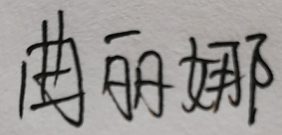 曲丽娜